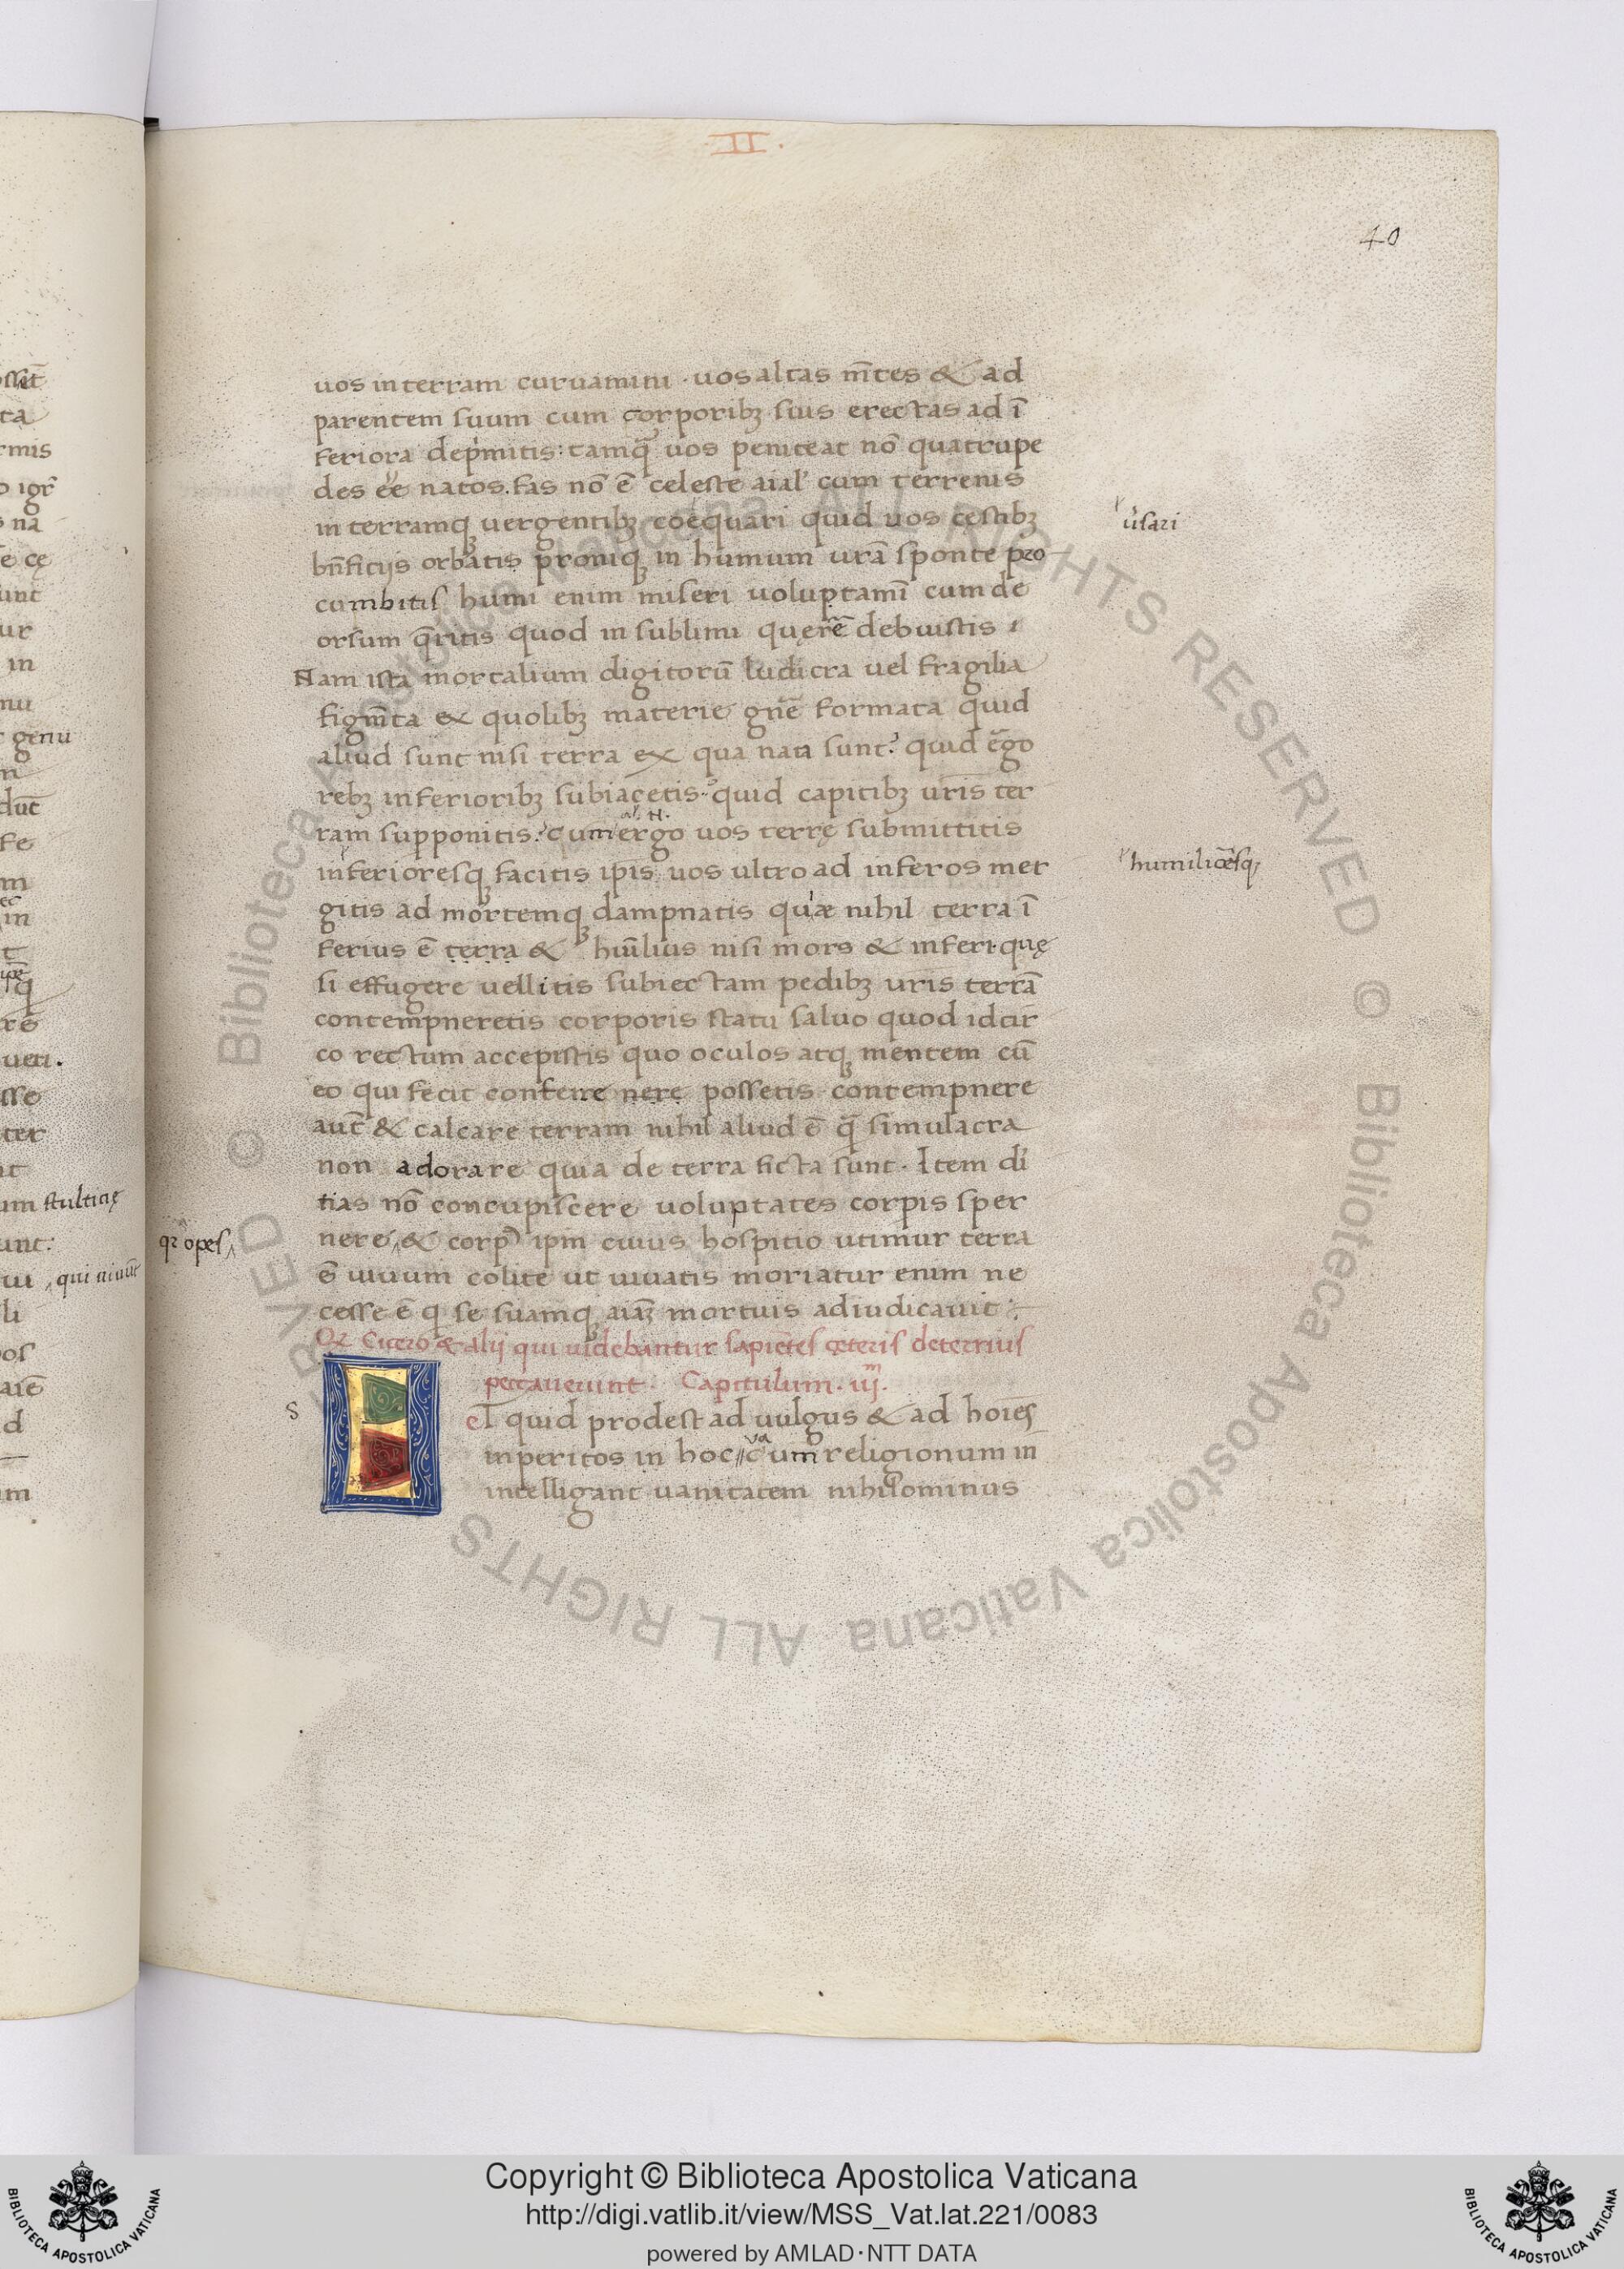 II.
40
uos in terram curuamini · uos altas m̄tes & ad
parentem suum cum corporibꝫ suis erectas ad ī
feriora dep̍mitis: tamq̄ uos peniteat nō quatrupe
des ēe natos. fas nō ē celeste aial' cum terrenis
in terramqꝫ uergentibꝫ coequari quid uos cestibꝫ
ūsari
bn̄ficijs orbatis proniqꝫ in humum urā sponte pro
cumbitis humi enim miseri uoluptamī cum de
orsum q̄ritis quod in sublimi quęrē debuistis
Nam ista mortalium digitorū ludicra uel fragilia
figm̄ta ex quolibꝫ materie gn̄e formata quid
aliud sunt nisi terra ex qua nata sunt? quid ergo
rebꝫ inferioribꝫ subiacetis? quid capitibꝫ uris ter
ram supponitis? cum ergo uos terrę submittitis
al. N.
inferioresqꝫ facitis ipīs uos ultro ad inferos mer
humiliōesqꝫ
gitis ad mortemqꝫ dampnatis quæ nihil terra ī
ferius ē terra & hūilius nisi mors & inferi · quę
si effugere uellitis subiectam pedibꝫ uris terrā
contempneretis corporis statu saluo quod idcir
co rectum accepistis quo oculos atqꝫ mentem cū
eo qui fecit conferre nere possetis · contempnere
aut̄ & calcare terram nihil aliud ē q̄ simulacra
non adorare quia de terra ficta sunt · Item di
tias nō concupiscere uoluptates corpis sper
nere & corpꝰ ipm cuius hospitio utimur terra
qꝛ opes
ē uiuum colite ut uiuatis moriatur enim ne
cesse ē q̍ se suamqꝫ aiaꝫ mortuis adiudicauit :
Qꝛ Cicero & alij qui uidebantur sapiētes cęteris deterrius
peccauerunt · Capitulum · iijᵐ.
S
eT quid prodest ad uulgus & ad hoies
inperitos in hoc cum religionum in
ua
intelligant uanitatem nihilominus
stulticię
Copyright © Biblioteca Apostolica Vaticana
http://digi.vatlib.it/view/MSS_Vat.lat.221/0083
powered by AMLAD·NTT DATA
BIBLIOTECA APOSTOLICA VATICANA
BIBLIOTECA APOSTOLICA VATICANA
© Biblioteca Apostolica Vaticana ALL RIGHTS RESERVED © Biblioteca Apostolica Vaticana ALL RIGHTS RESERVED